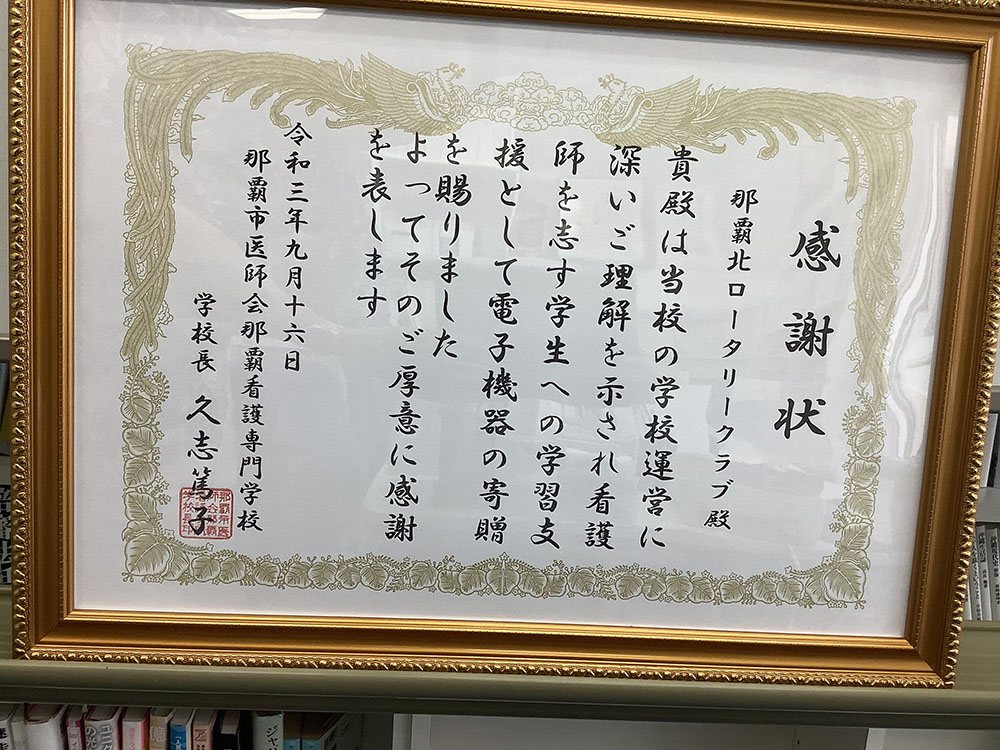 感謝状
那覇北ロータリークラブ殿
貴殿は当校の学校運営に
深いご理解を示され看護
師を志す学生への学習支
援として電子機器の寄贈
を賜りました
よってそのご厚意に感謝
を表します
令和三年九月十六日
那覇市医師会那覇看護専門学校
学校長 久志篤子